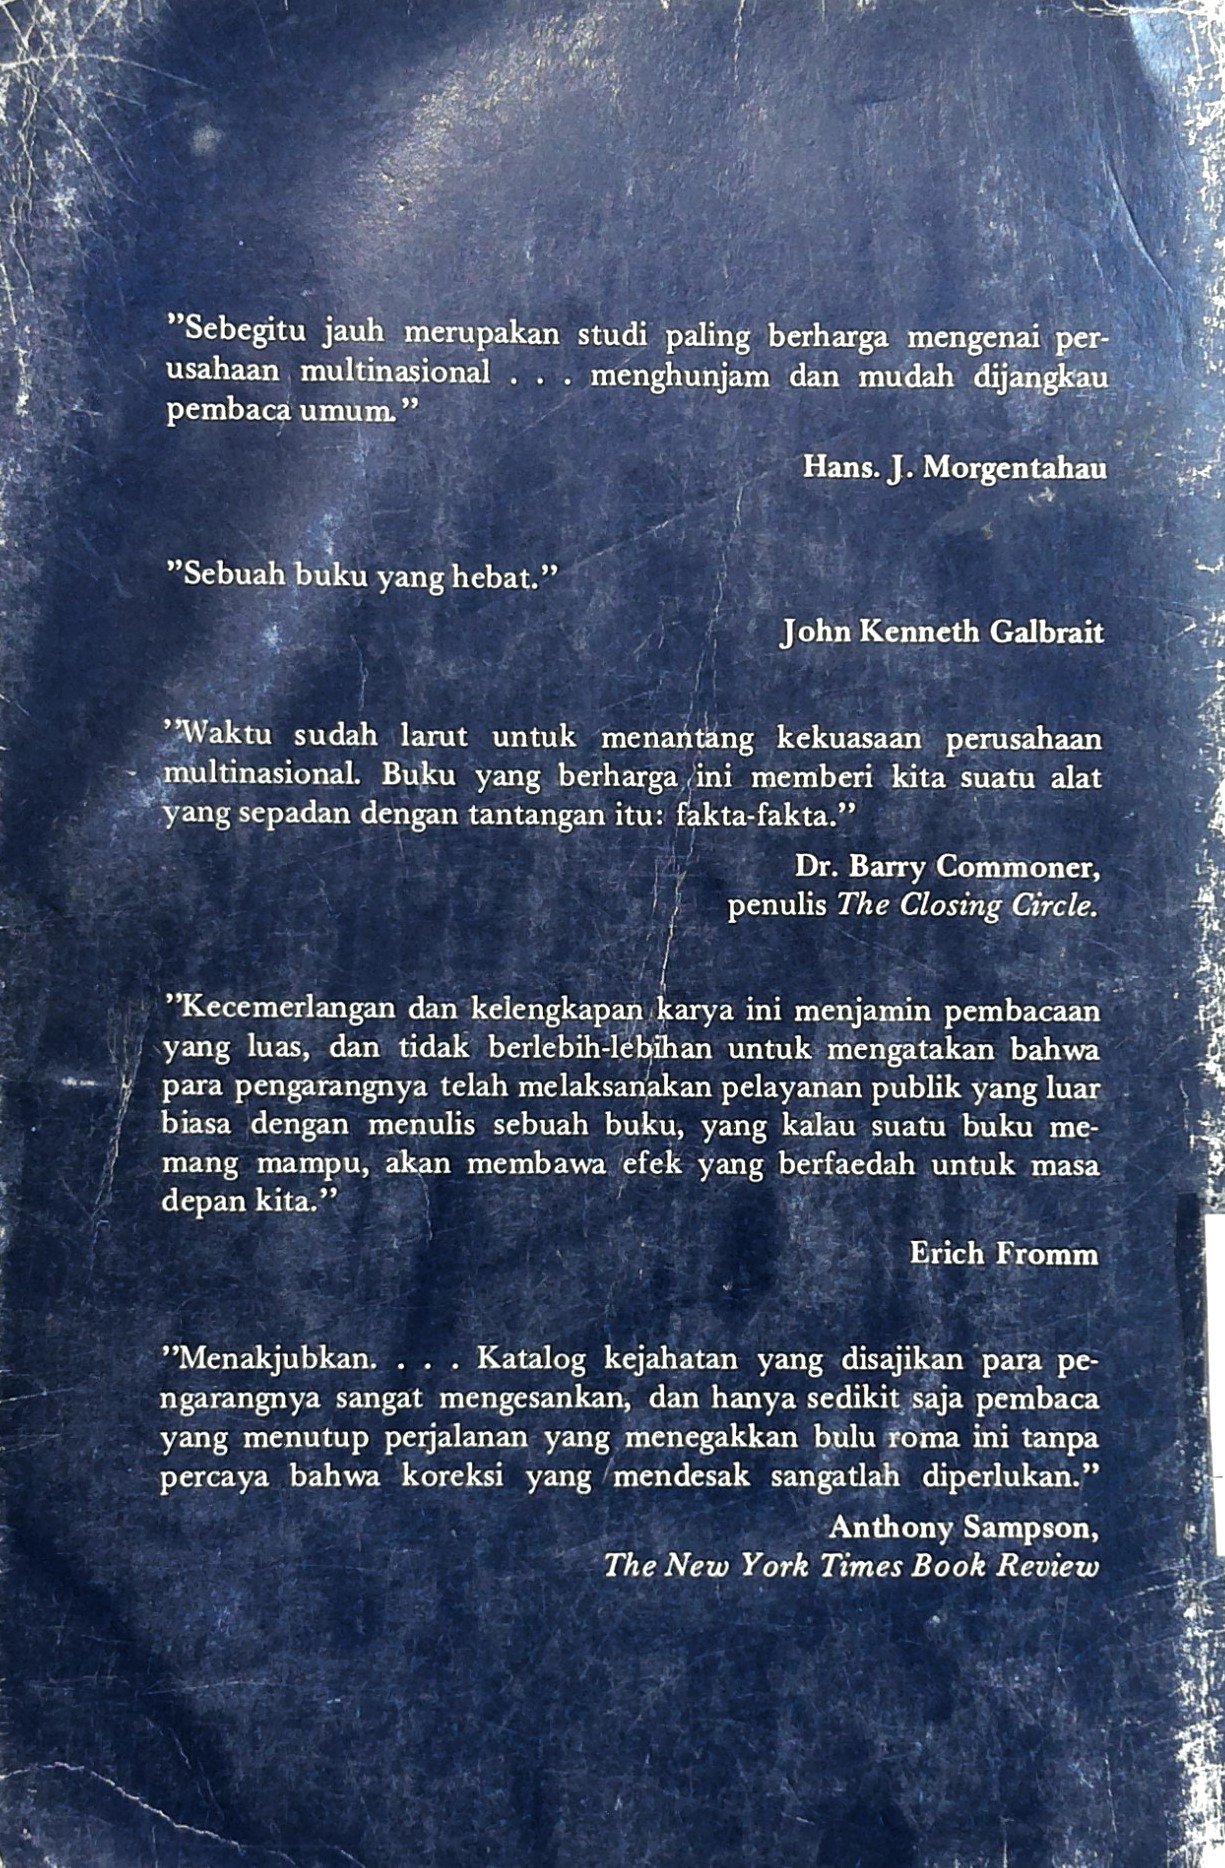 ”Sebegitu jauh merupakan studi paling berharga mengenai per-
usahaan multinasional . . . menghunjam dan mudah dijangkau
pembaca umum.”
Hans. J. Morgentahau
”Sebuah buku yang hebat.”
John Kenneth Galbrait
”Waktu sudah larut untuk menantang kekuasaan perusahaan
multinasional. Buku yang berharga ini memberi kita suatu alat
yang sepadan dengan tantangan itu: fakta-fakta.”
Dr. Barry Commoner,
penulis The Closing Circle.
”Kecemerlangan dan kelengkapan karya ini menjamin pembacaan
yang luas, dan tidak berlebih-lebihan untuk mengatakan bahwa
para pengarangnya telah melaksanakan pelayanan publik yang luar
biasa dengan menulis sebuah buku, yang kalau suatu buku me-
mang mampu, akan membawa efek yang berfaedah untuk masa
depan kita.”
Erich Fromm
”Menakjubkan. . . . Katalog kejahatan yang disajikan para pe-
ngarangnya sangat mengesankan, dan hanya sedikit saja pembaca
yang menutup perjalanan yang menegakkan bulu roma ini tanpa
percaya bahwa koreksi yang mendesak sangatlah diperlukan.”
Anthony Sampson,
The New York Times Book Review